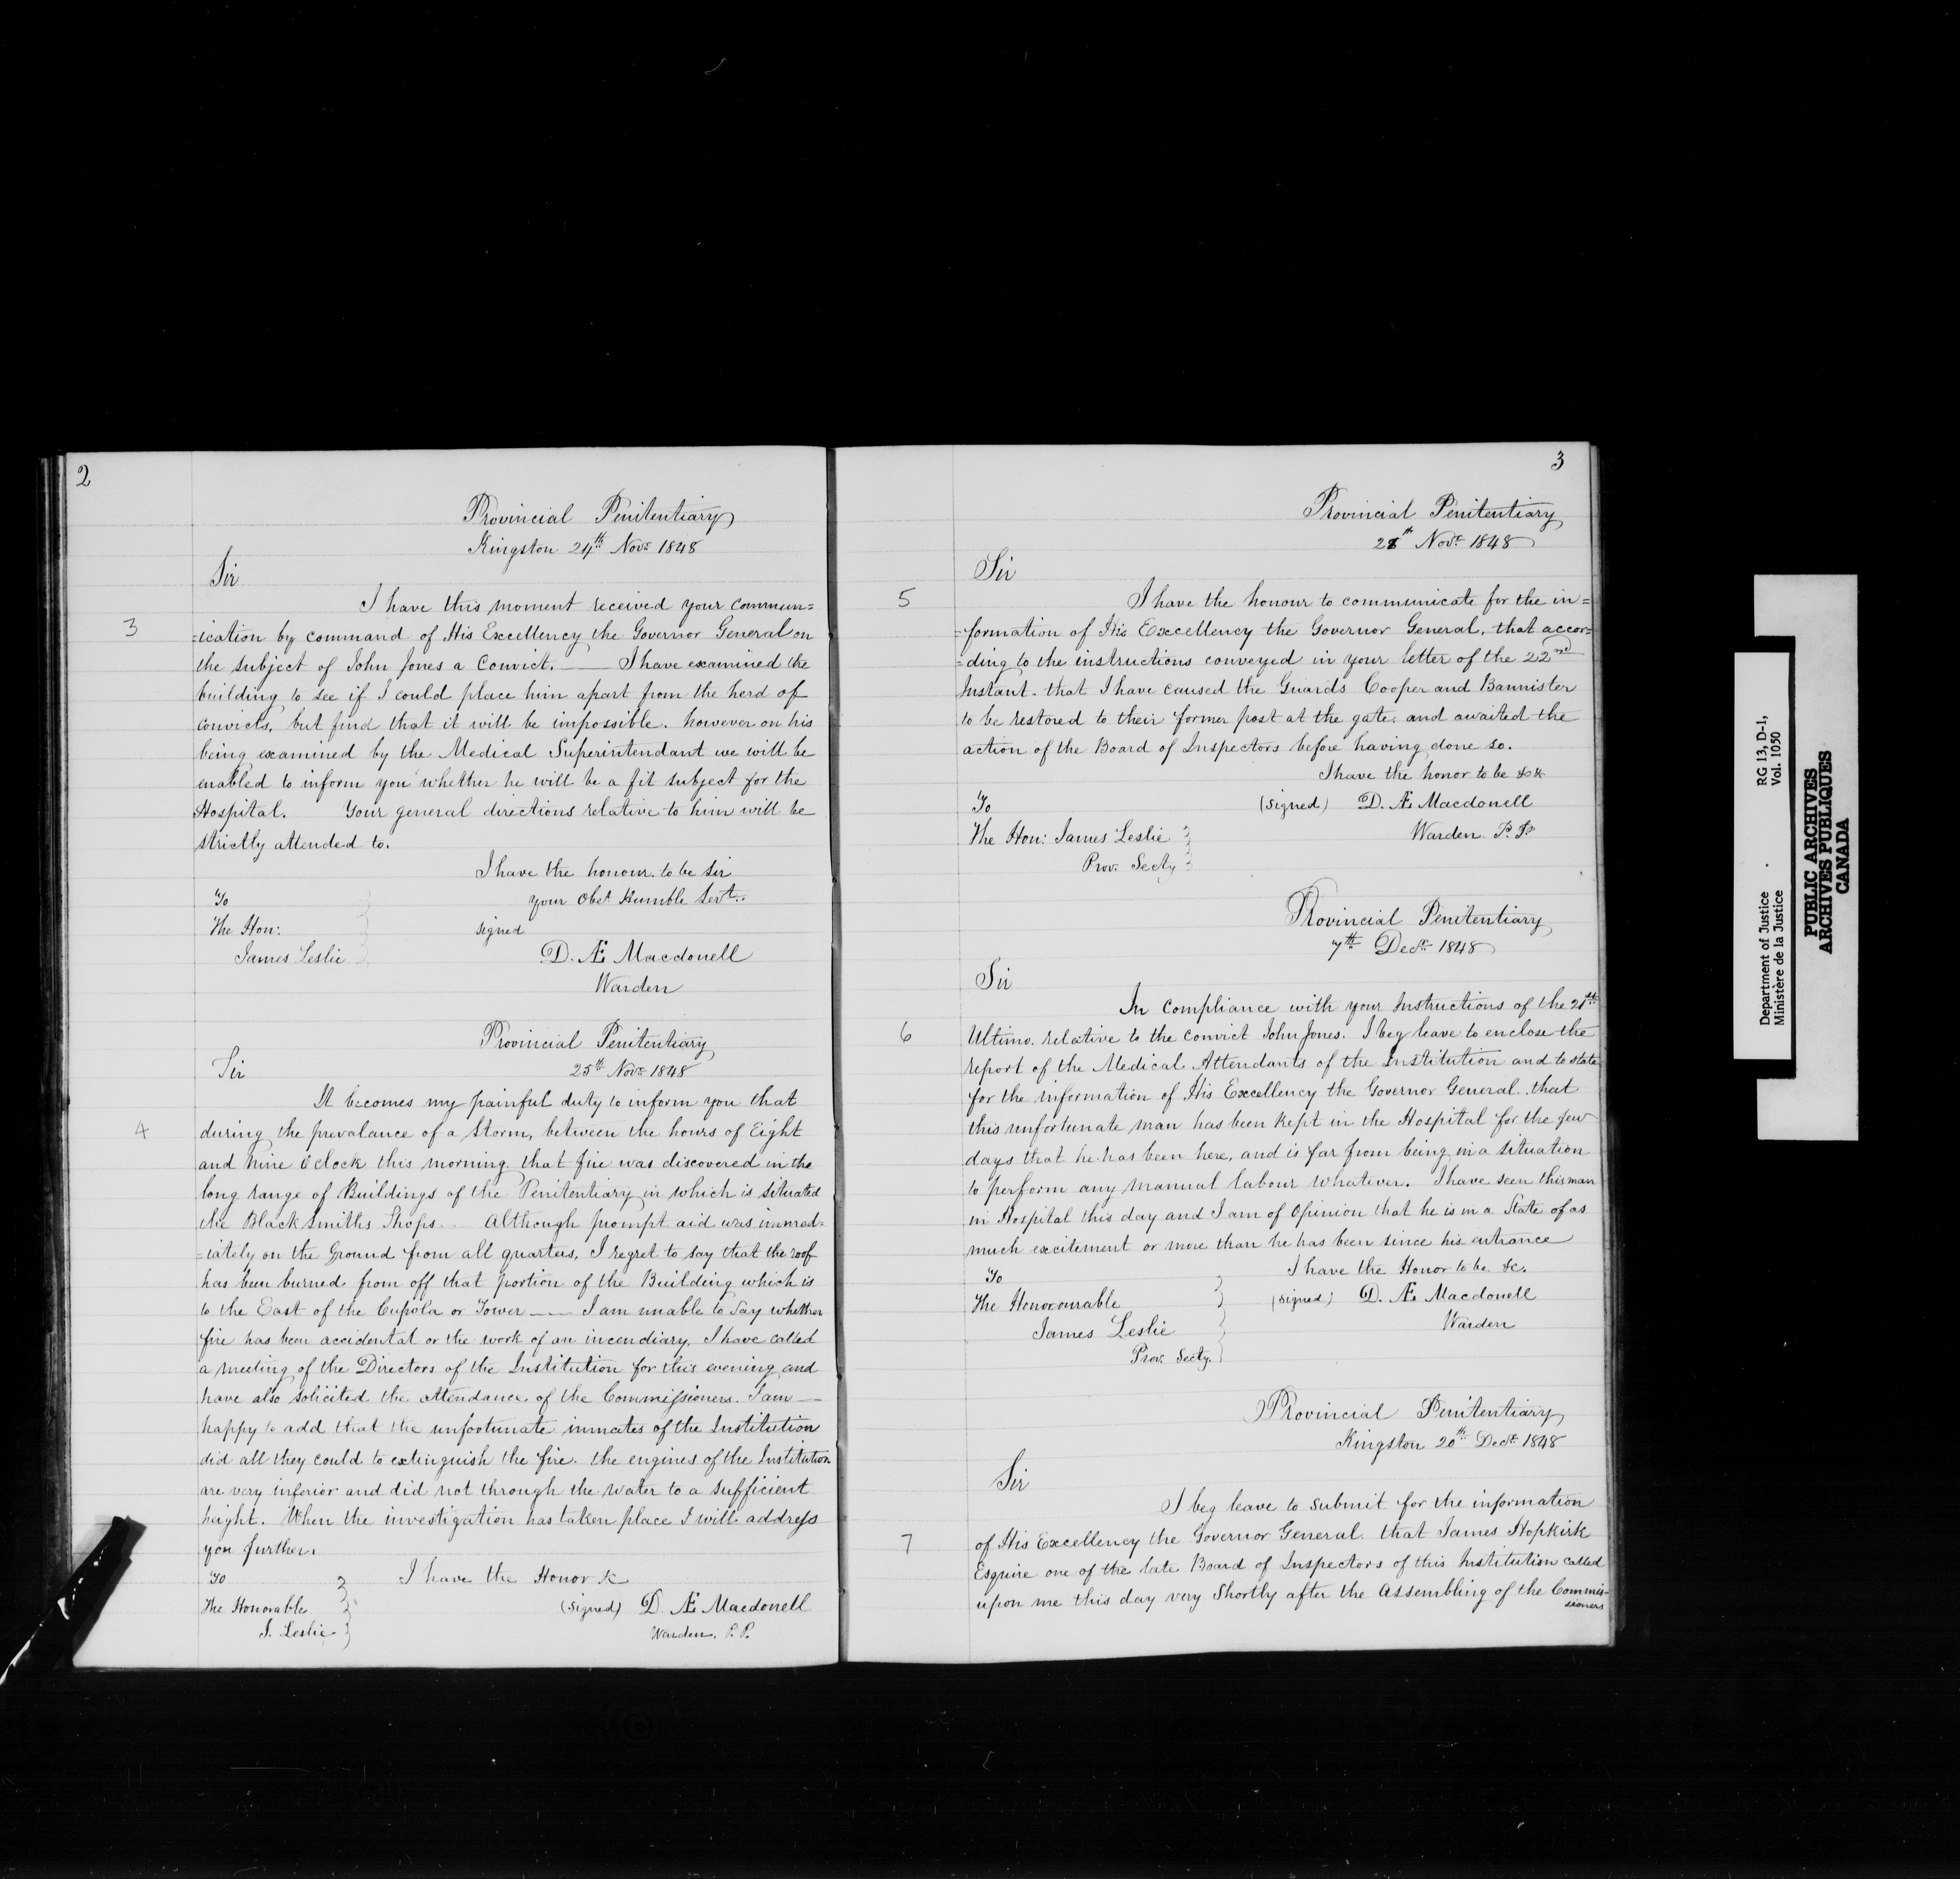 2
Provincial Penitentiary
Kingston 24th Novr 1848
Sir
I have this moment received your commun=
3
=ication by command of His Excellency the Governor General on
the subject of John Jones a Convict. —— I have examined the
building to see if I could place him apart from the herd of
convicts, but find that it will be impossible. however on his
being examined by the Medical Superintendant we will be
enabled to inform you whether he will be a fit subject for the
Hospital. Your general directions relative to him will be
strictly attended to.
I have the honour to be Sir
To
your Obet Humble Servt.
The Hon:
signed
James Leslie
D. Æ Macdonell
Warden
Provincial Penitentiary
Sir
25th Novr 1848
It becomes my painful duty to inform you that
4
during the prevalance of a Storm, between the hours of Eight
and Nine O clock this morning that fire was discovered in the
long range of Buildings of the Penitentiary in which is situated
the Black Smiths Shops. Although prompt aid was immed=
=iately on the Ground from all quarters, I regret to say that the roof
has been burned from off that portion of the Building which is
to the East of the Cupola or Tower —— I am unable to say whether
fire has been accidental or the work of an incendiary, I have called
a meeting of the Directors of the Institution for this evening and
have also solicited the attendance of the Commissioners. I am —
happy to add that the unfortunate inmates of the Institution
did all they could to extinguish the fire. the engines of the Institution
are very inferior and did not through the water to a sufficient
height. When the investigation has taken place I will address
you further.
To
I have the Honor &c
The Honorable
(signed) D. Æ Macdonell
J. Leslie
Warden. P. P.
3
Provincial Penitentiary
28th Novr 1848
Sir
5
I have the honour to communicate for the in=
=formation of His Excellency the Governor General, that accor=
=ding to the instructions conveyed in your letter of the 22nd
Instant. that I have caused the Guards Cooper and Bannister
to be restored to their former post at the gate, and awaited the
action of the Board of Inspectors before having done so.
I have the honor to be &c &c
To
(signed) D. Æ Macdonell
The Hon: James Leslie
Warden P. P.
Prov. Secty
Provincial Penitentiary
7th Decr 1848
Sir
In compliance with your Instructions of the 21st
6
Ultimo. relative to the convict John Jones. I beg leave to enclose the
report of the Medical Attendants of the Institution and to state
for the information of His Excellency the Governor General. that
this unfortunate man has been kept in the Hospital for the few
days that he has been here, and is far from being in a situation
to perform any manual labour whatever. I have seen this man
in Hospital this day and I am of Opinion that he is in a State of as
much excitement or more than he has been since his entrance
I have the Honor to be &c.
To
The Honorourable
(signed) D. Æ Macdonell
James Leslie
Warden
Prov. Secty.
Provincial Penitentiary
Kingston 20th Decr 1848
Sir
I beg leave to submit for the information
7
of His Excellency the Governor General. that James Hopkirk
Esquire one of the late Board of Inspectors of this Institution called
upon me this day very Shortly after the Assembling of the Commis-
sioners
Department of Justice RG 13, D-1,
Ministère de la Justice Vol. 1050
PUBLIC ARCHIVES
ARCHIVES PUBLIQUES
CANADA